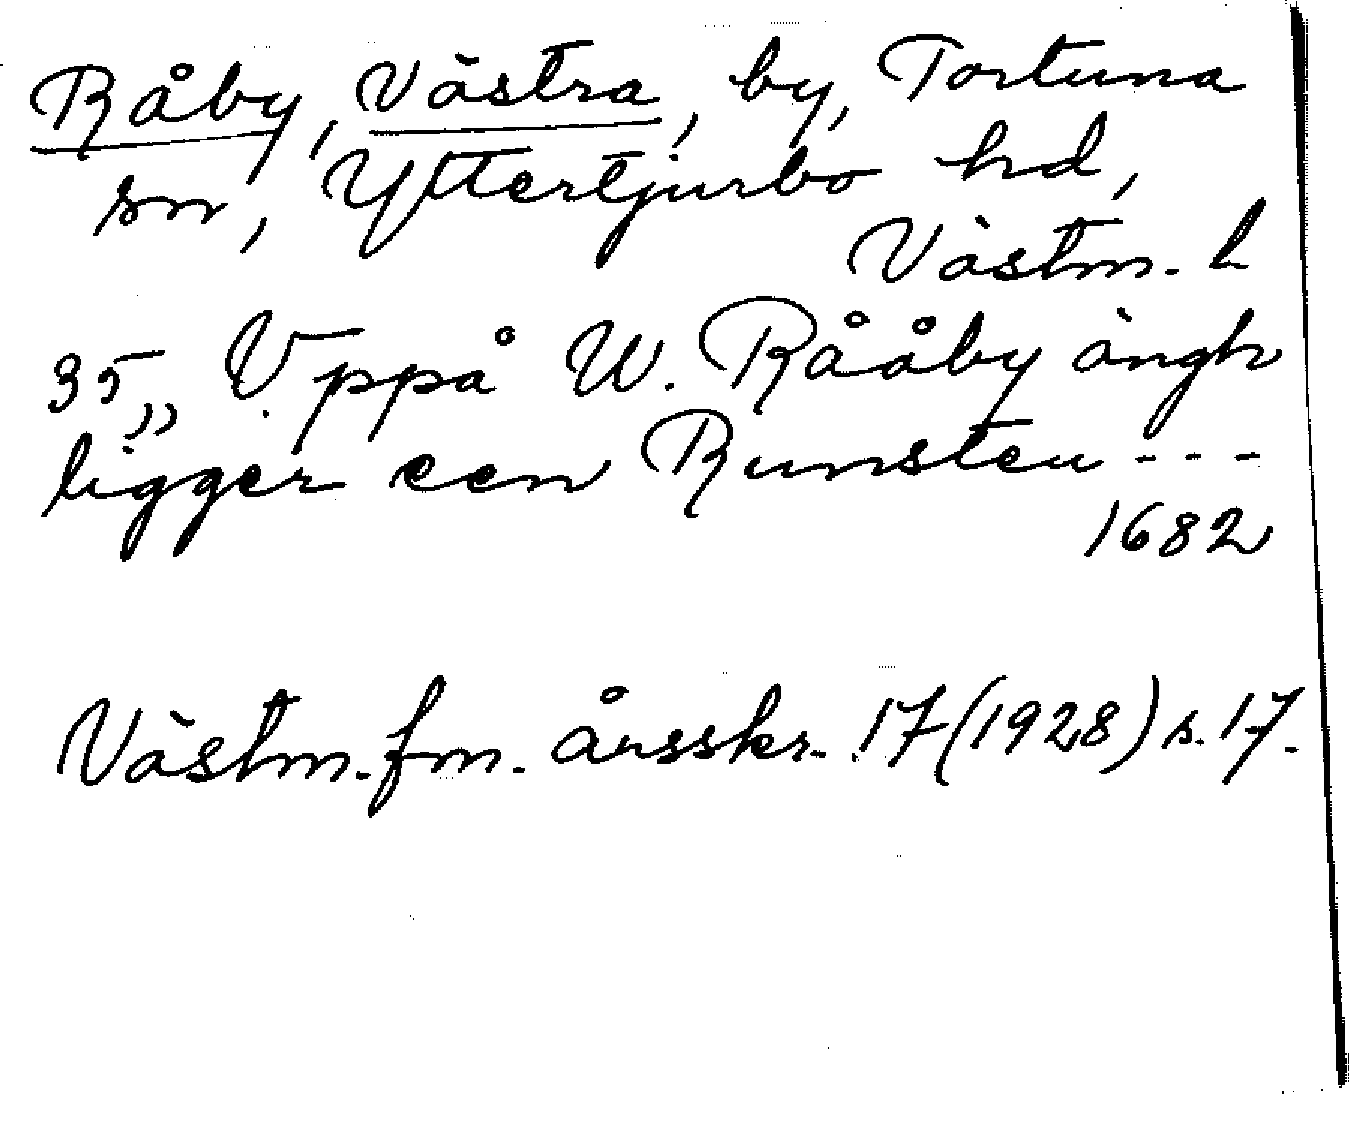 Råby, Västra, by, Tortuna
sn, Yttertjurbo hd,
Västm. l
35,, Vppå W. Rååby ängh
ligger een Runsten - - -
1682
Västm. fm. årsskr. 17 (1928) s. 17.